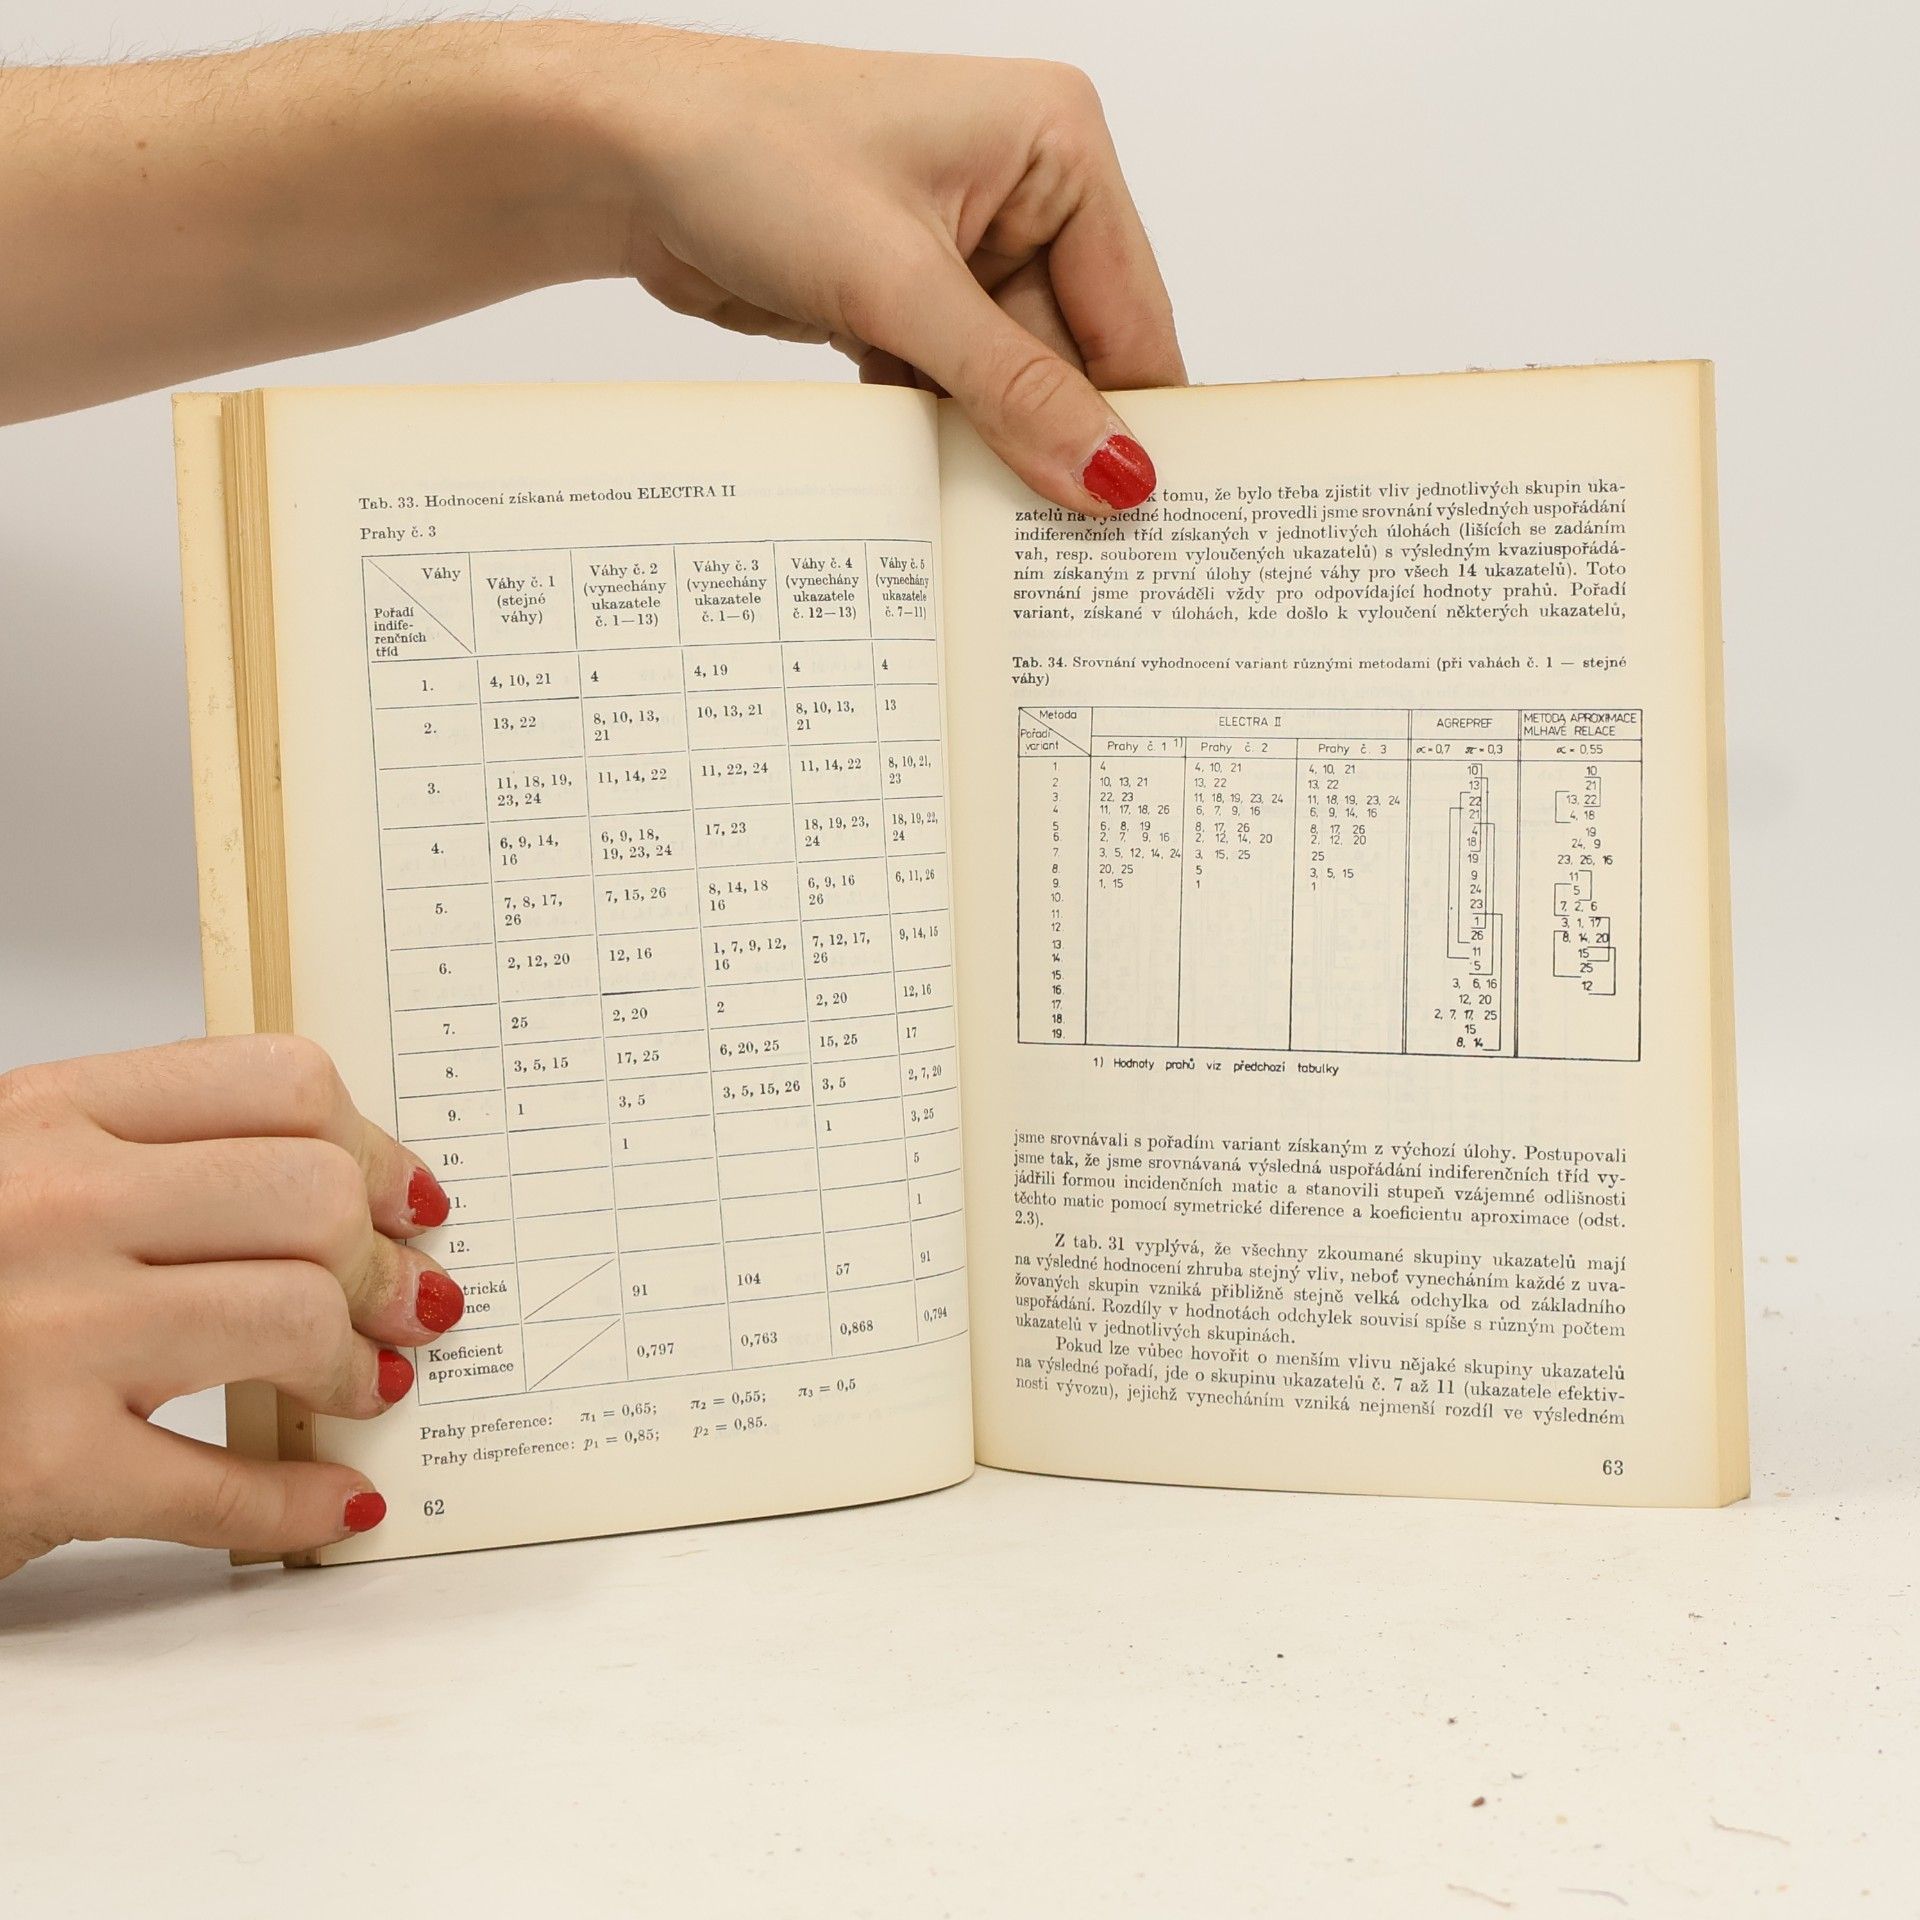 Tab. 33. Hodnocení získaná metodou ELECTRA II
Prahy č. 3
Váhy
Pořadí
indife-
renčních
tříd
Váhy č. 1
(stejné
váhy)
Váhy č. 2
(vynechány
ukazatele
č. 1—13)
Váhy č. 3
(vynechány
ukazatele
č. 1—6)
Váhy č. 4
(vynechány
ukazatele
č. 12—13)
Váhy č. 5
(vynechány
ukazatele
č. 7—11)
1. 4, 10, 21 4 4, 19 4 4
2. 13, 22 8, 10, 13, 21 10, 13, 21 8, 10, 13, 21 13
3. 11, 18, 19, 23, 24 11, 14, 22 11, 22, 24 11, 14, 22 8, 10, 21, 23
4. 6, 9, 14, 16 6, 9, 18, 19, 23, 24 17, 23 18, 19, 23, 24 18, 19, 22, 24
5. 7, 8, 17, 26 7, 15, 26 8, 14, 18 16 6, 9, 16 26 6, 11, 26
6. 2, 12, 20 12, 16 1, 7, 9, 12, 16 7, 12, 17, 26 9, 14, 15
7. 25 2, 20 2 2, 20 12, 16
8. 3, 5, 15 17, 25 6, 20, 25 15, 25 17
9. 1 3, 5 3, 5, 15, 26 3, 5 2, 7, 20
10. 1 1 3, 25
11. 5
12. 1
trická
nce 91 104 57 91
Koeficient
aproximace 0,797 0,763 0,868 0,794
Prahy preference: π₁ = 0,65; π₂ = 0,55; π₃ = 0,5
Prahy dispreference: p₁ = 0,85; p₂ = 0,85.
62
k tomu, že bylo třeba zjistit vliv jednotlivých skupin uka-
zatelů na výsledné hodnocení, provedli jsme srovnání výsledných uspořádání
indiferenčních tříd získaných v jednotlivých úlohách (lišících se zadáním
vah, resp. souborem vyloučených ukazatelů) s výsledným kvaziuspořádá-
ním získaným z první úlohy (stejné váhy pro všech 14 ukazatelů). Toto
srovnání jsme prováděli vždy pro odpovídající hodnoty prahů. Pořadí
variant, získané v úlohách, kde došlo k vyloučení některých ukazatelů,
Tab. 34. Srovnání vyhodnocení variant různými metodami (při vahách č. 1 — stejné
váhy)
Metoda
Pořadí
variant
ELECTRA II
AGREPREF
METODA APROXIMACE
MLHAVÉ RELACE
Prahy č. 1 ¹) Prahy č. 2 Prahy č. 3 α = 0,7 π = 0,3 α = 0,55
1. 4 4, 10, 21 4, 10, 21 10 10
2. 10, 13, 21 13, 22 13, 22 13 21
3. 22, 23 11, 18, 19, 23, 24 11, 18, 19, 23, 24 22 13, 22
4. 11, 17, 18, 26 6, 7, 9, 16 6, 9, 14, 16 21 4, 18
5. 6, 8, 19 8, 17, 26 8, 17, 26 4 19
6. 2, 7, 9, 16 2, 12, 14, 20 2, 12, 20 18 24, 9
7. 3, 5, 12, 14, 24 3, 15, 25 25 19 23, 26, 16
8. 20, 25 5 3, 5, 15 9 11
9. 1, 15 1 1 24 5
10. 23 7, 2, 6
11. 1 3, 1, 17
12. 26 8, 14, 20
13. 11 15
14. 5 25
15. 3, 6, 16 12
16. 12, 20
17. 2, 7, 17, 25
18. 15
19. 8, 14
1) Hodnoty prahů viz předchozí tabulky
jsme srovnávali s pořadím variant získaným z výchozí úlohy. Postupovali
jsme tak, že jsme srovnávaná výsledná uspořádání indiferenčních tříd vy-
jádřili formou incidenčních matic a stanovili stupeň vzájemné odlišnosti
těchto matic pomocí symetrické diference a koeficientu aproximace (odst.
2.3).
Z tab. 31 vyplývá, že všechny zkoumané skupiny ukazatelů mají
na výsledné hodnocení zhruba stejný vliv, neboť vynecháním každé z uva-
žovaných skupin vzniká přibližně stejně velká odchylka od základního
uspořádání. Rozdíly v hodnotách odchylek souvisí spíše s různým počtem
ukazatelů v jednotlivých skupinách.
Pokud lze vůbec hovořit o menším vlivu nějaké skupiny ukazatelů
na výsledné pořadí, jde o skupinu ukazatelů č. 7 až 11 (ukazatele efektiv-
nosti vývozu), jejichž vynecháním vzniká nejmenší rozdíl ve výsledném
63